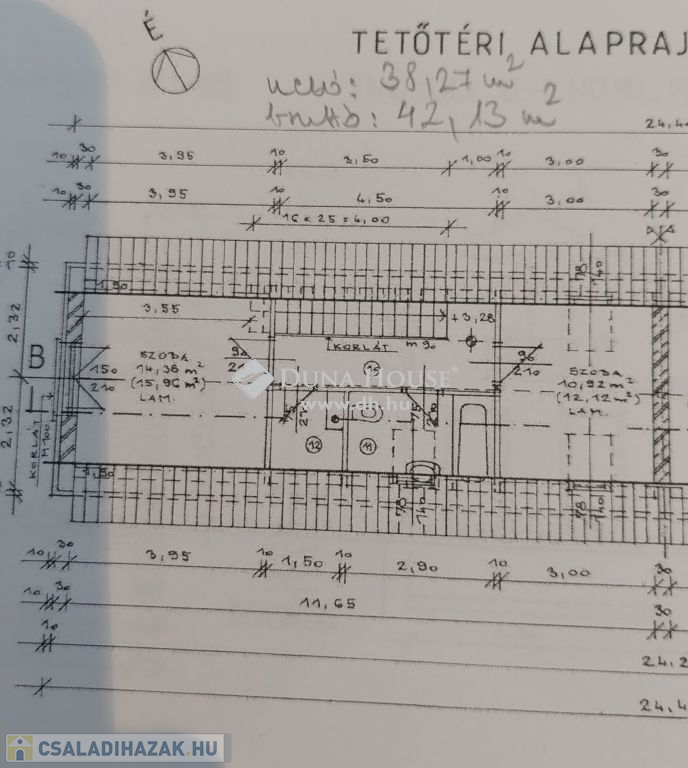 É
TETŐTÉRI ALAPRAJ
nettó: 38,27 m²
bruttó: 42,13 m²
24,4
10 30 3,95 10 3,50 1,00 10 3,00 30
10 30 3,95 10 4,50 10 3,00 30
16 x 25 = 4,00
10
2,32
2,32
B
KORLÁT
M 100
1,90
3,55
+3,28
KORLÁT m 90
SZOBA
14,36 m²
(15,96 m²)
LAM.
150
210
90
10
96
210
SZOBA
10,92 m²
(12,12 m²)
LAM.
DUNA HOUSE
www.dh.hu
75
210
75
210
12
11
1,90
78
140
78
140
78
140
10 30 3,95 10 1,50 10 2,90 10 3,00 30
10 30 11,65 30
10 24,2
24,4
CSALADIHAZAK.HU